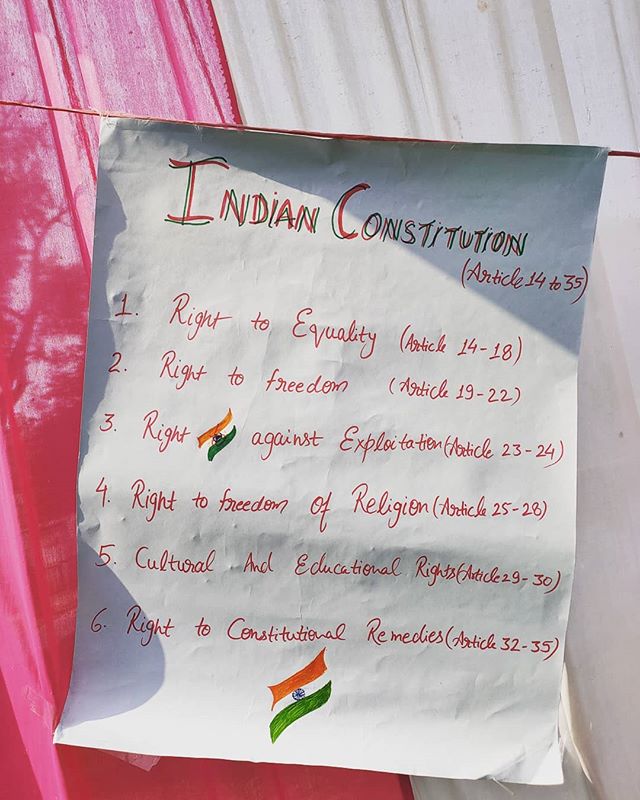 INDIAN CONSTITUTION
(Article 14 to 35)
1. Right to Equality (Article 14-18)
2. Right to freedom (Article 19-22)
3. Right against Exploitation (Article 23-24)
4. Right to freedom of Religion (Article 25-28)
5. Cultural And Educational Rights (Article 29-30)
6. Right to Constitutional Remedies (Article 32-35)